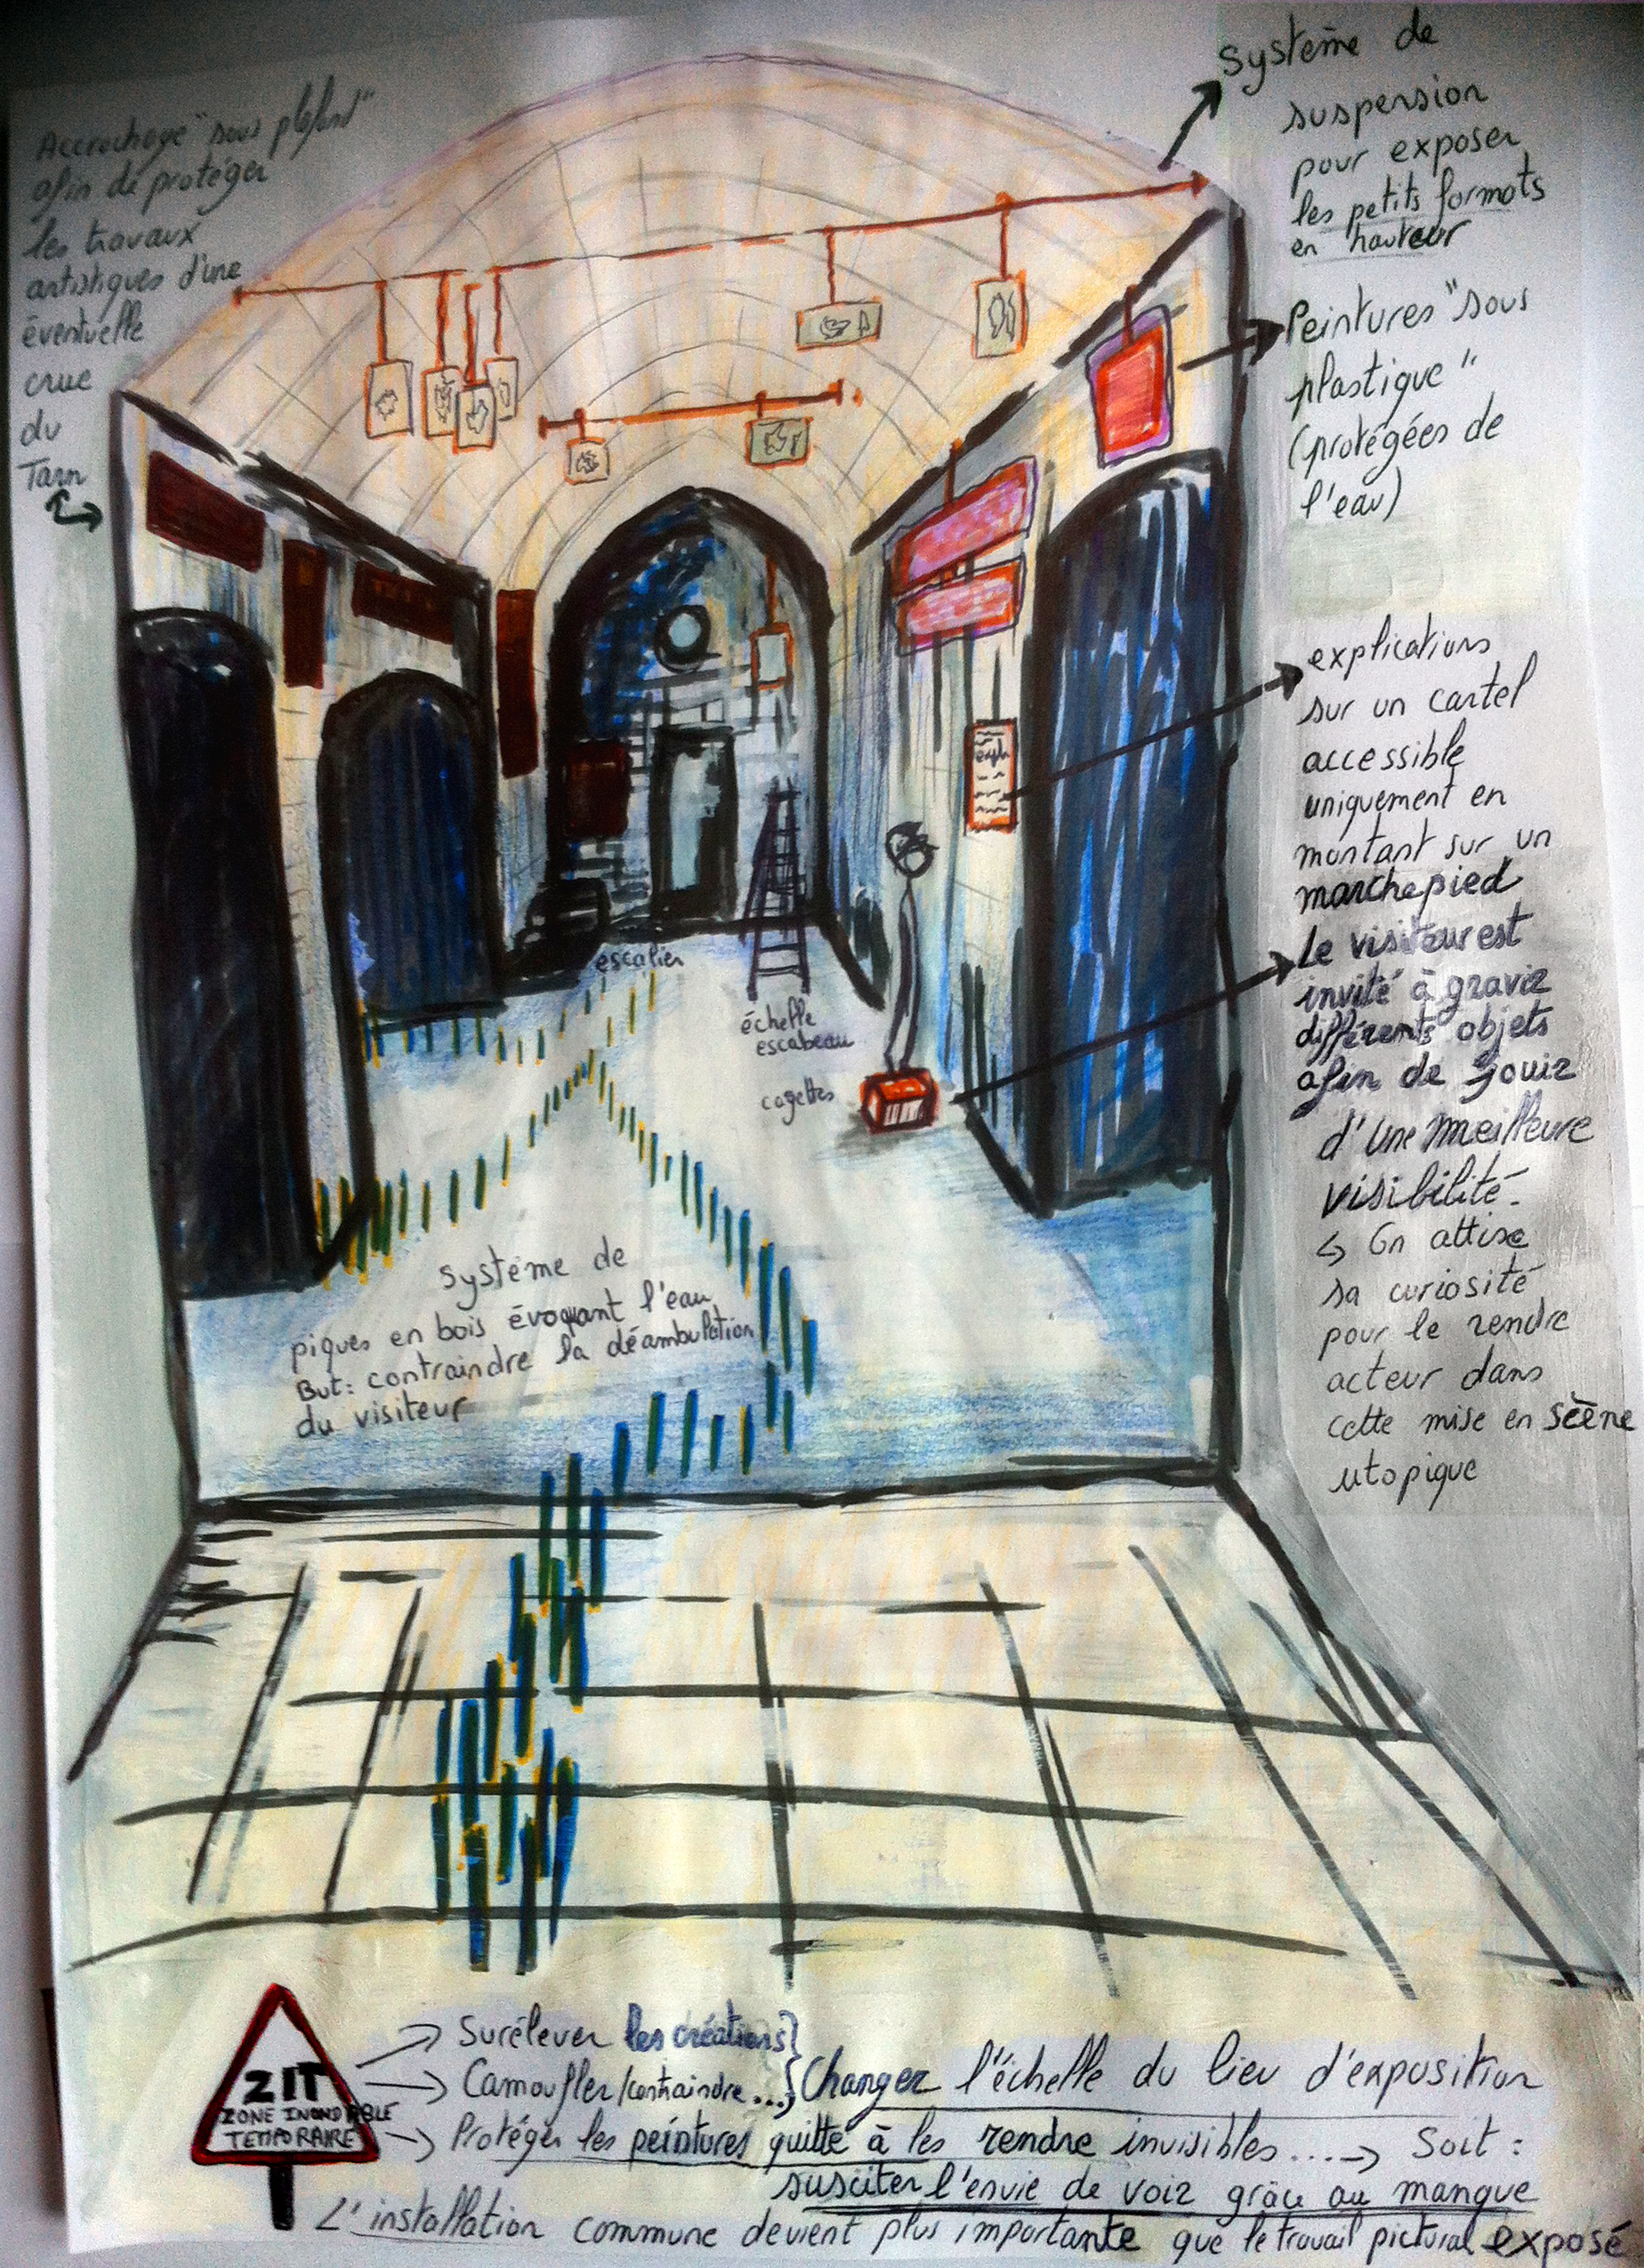 Accrochage "sous plafond"
afin de protéger
les travaux
artistiques d'une
éventuelle
crue
du
Tarn
Système de
suspension
pour exposer
les petits formats
en hauteur
Peintures "sous
plastique"
(protégées de
l'eau)
explications
sur un cartel
accessible
uniquement en
montant sur un
marchepied
Le visiteur est
invité à gravir
différents objets
afin de jouir
d'une meilleure
visibilité.
↳ On attise
sa curiosité
pour le rendre
acteur dans
cette mise en scène
utopique
expl
escalier
échelle
escabeau
cagettes
Système de
piques en bois évoquant l'eau
But: contraindre la déambulation
du visiteur
ZIT
ZONE INONDABLE
TEMPORAIRE
→ Surélever les créations}
→ Camoufler/contraindre...} Changer l'échelle du lieu d'exposition
→ Protéger les peintures quitte à les rendre invisibles....→ Soit :
susciter l'envie de voir grâce au manque
L'installation commune devient plus importante que le travail pictural exposé